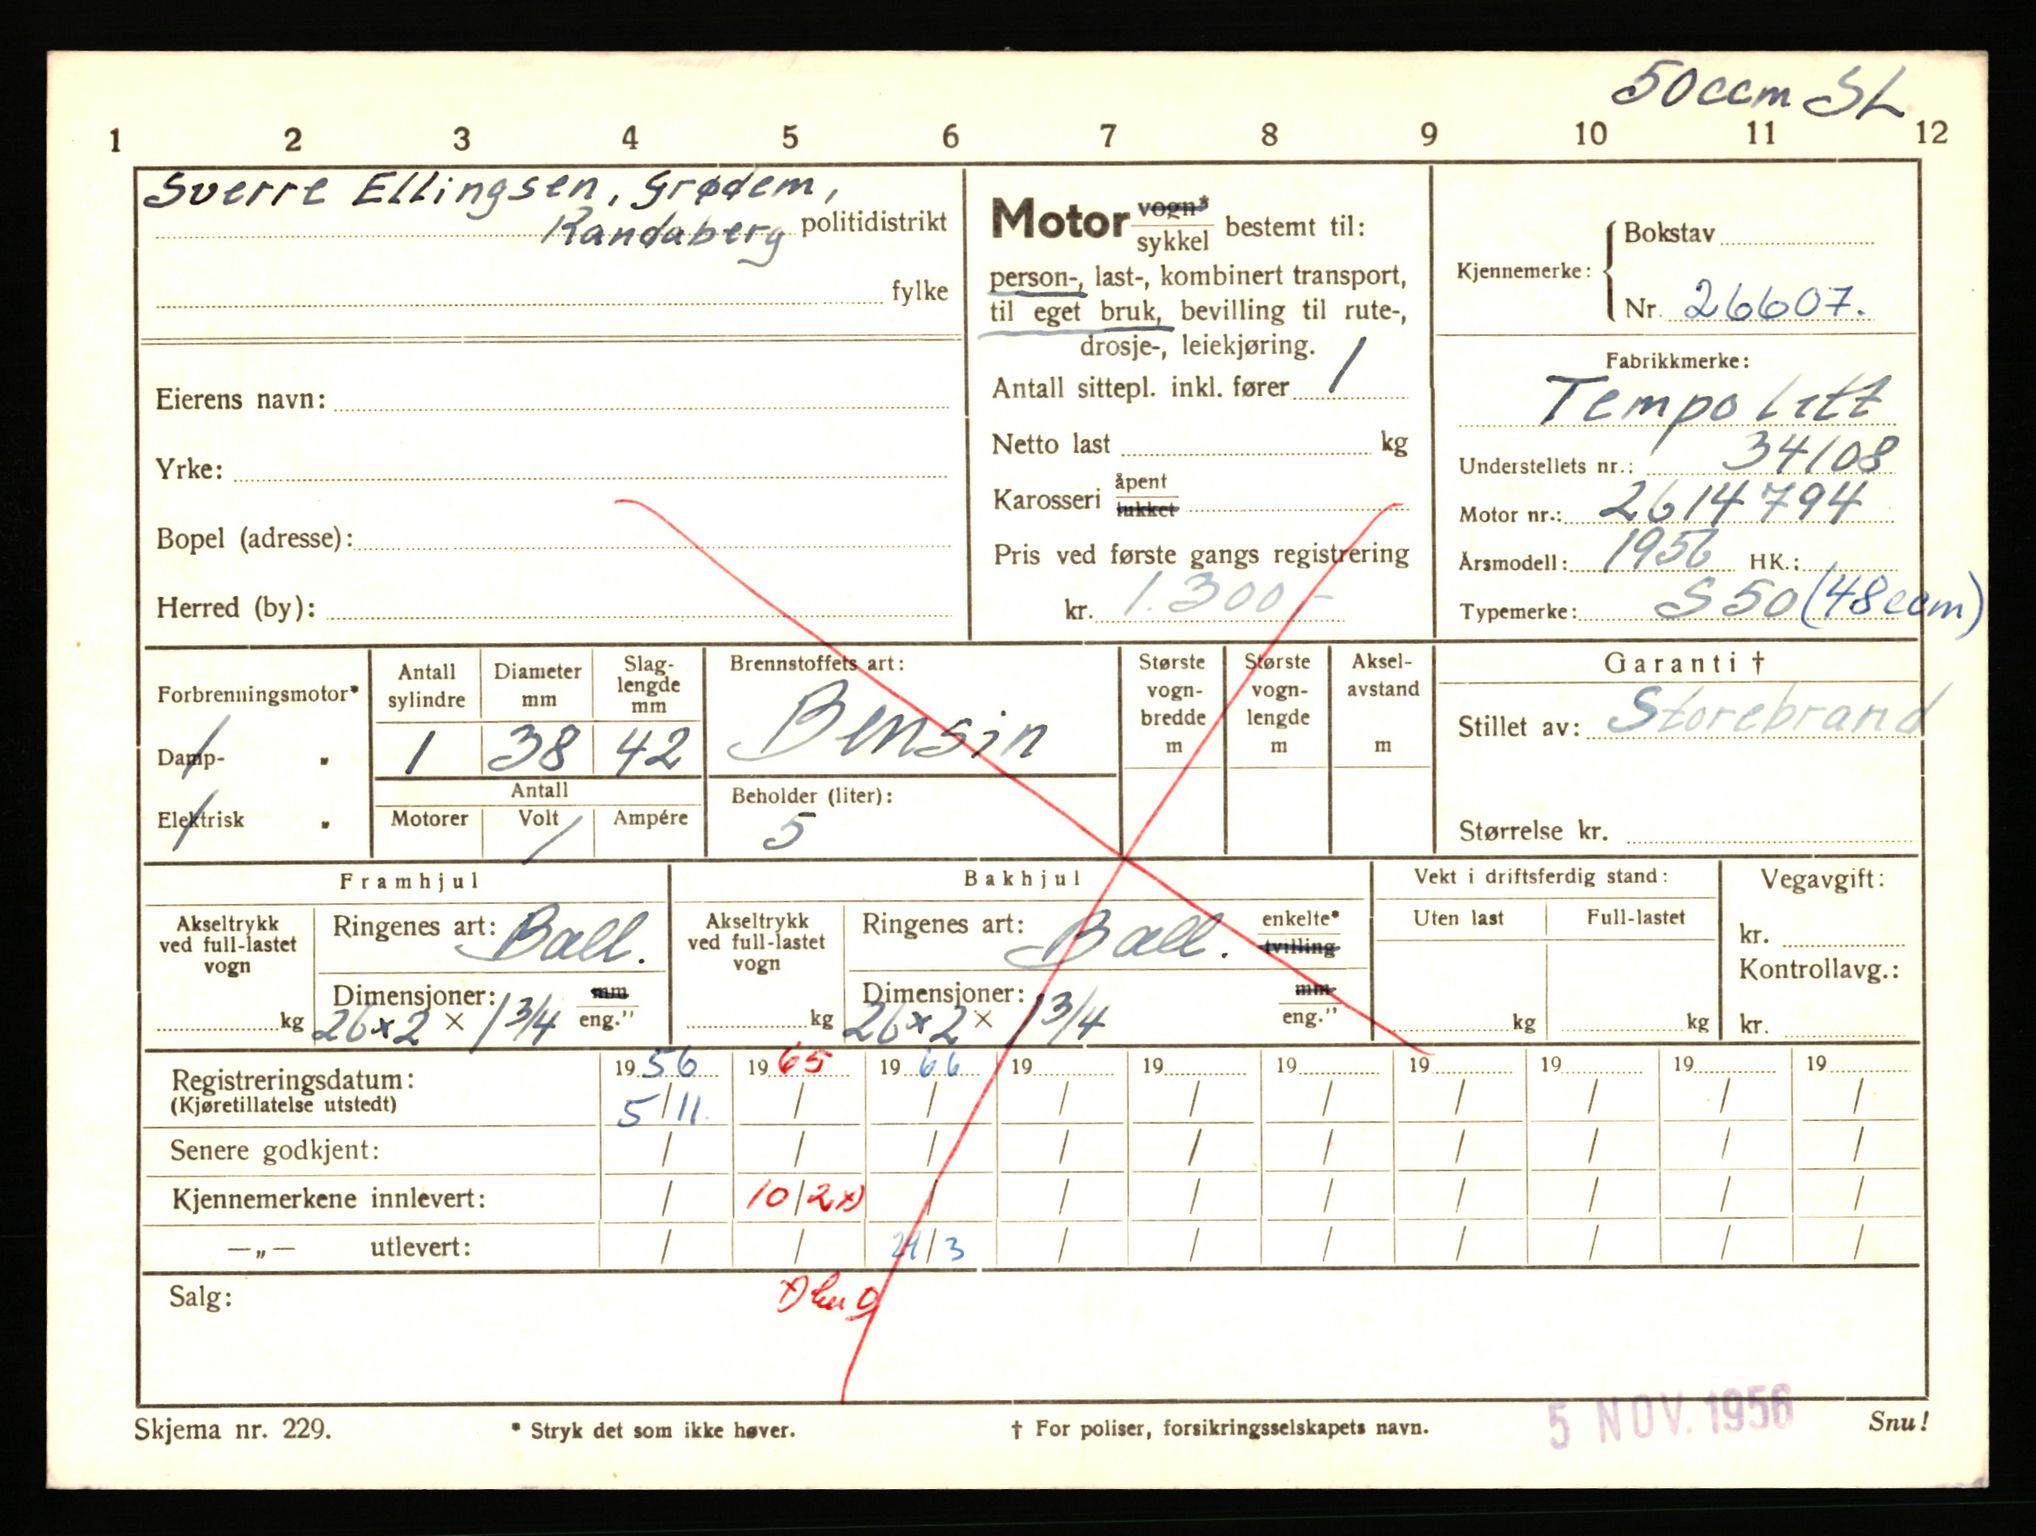 50ccm SL
1 2 3 4 5 6 7 8 9 10 11 12
Sverre Ellingsen, Grødem,
Randaberg politidistrikt
fylke
Eierens navn:
Yrke:
Bopel (adresse):
Herred (by):
Motor vogn* / sykkel bestemt til:
person-, last-, kombinert transport,
til eget bruk, bevilling til rute-,
drosje-, leiekjøring.
Antall sittepl. inkl. fører 1
Netto last kg
Karosseri åpent / lukket
Pris ved første gangs registrering
kr. 1.300,-
Kjennemerke: Bokstav
Nr. 26607.
Fabrikkmerke:
Tempo Lett
Understellets nr.: 34108
Motor nr.: 2614794
Årsmodell: 1956 HK.:
Typemerke: S 50 (48ccm)
Forbrenningsmotor*
Damp- "
Elektrisk "
Antall sylindre
1
Diameter mm
38
Slaglengde mm
42
Antall
Motorer Volt Ampére
Brennstoffets art:
Bensin
Beholder (liter):
5
Største vognbredde m
Største vognlengde m
Akselavstand m
Garanti †
Stillet av: Storebrand
Størrelse kr.
Framhjul
Akseltrykk ved full-lastet vogn
kg
Ringenes art: Ball.
Dimensjoner: mm / eng."
26 x 2 × 1 3/4
Bakhjul
Akseltrykk ved full-lastet vogn
kg
Ringenes art: Ball. enkelte* / tvilling
Dimensjoner: mm / eng."
26 x 2 × 1 3/4
Vekt i driftsferdig stand:
Uten last Full-lastet
kg kg
Vegavgift:
kr.
Kontrollavg.:
kr.
19 56 19 65 19 66 19 19 19 19 19 19 19
Registreringsdatum:
(Kjøretillatelse utstedt) 5/11. / / / / / / / / /
Senere godkjent: / / / / / / / / / /
Kjennemerkene innlevert: / 10/2 x) / / / / / / / /
—„— utlevert: / / 24/3 / / / / / / /
Salg:
Skjema nr. 229.
* Stryk det som ikke høver.
† For poliser, forsikringsselskapets navn.
5 NOV. 1956
Snu!